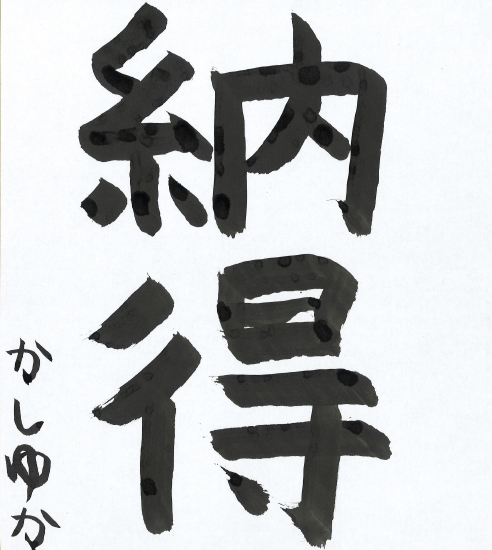 納得
かしゆか